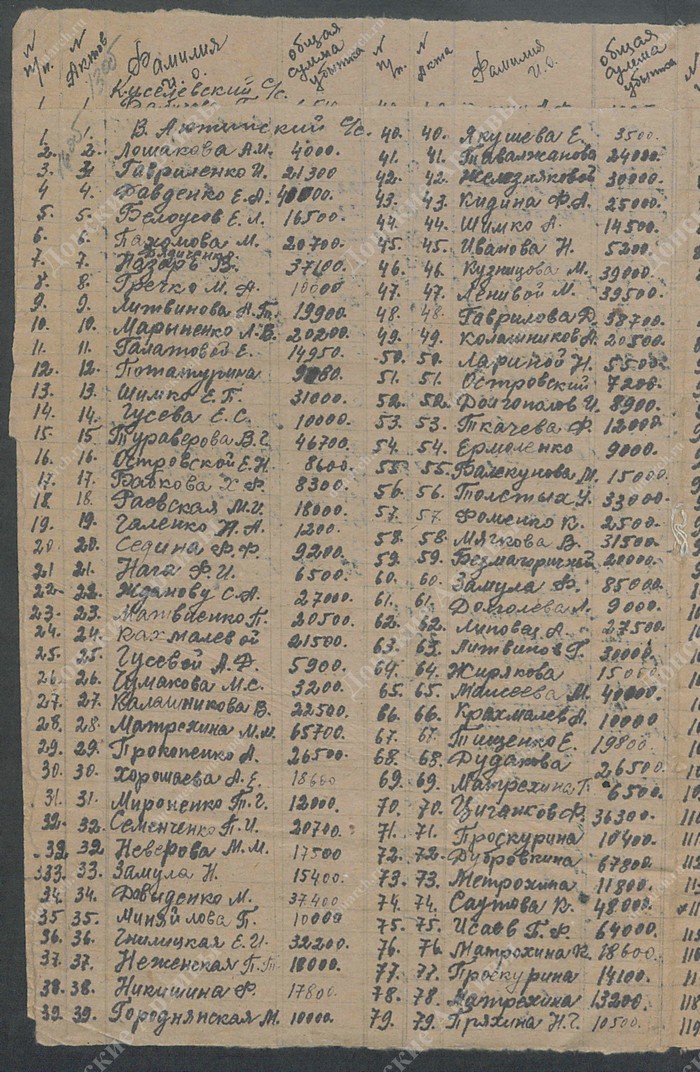 N п/п. N Актов Фамилия И.О. общая сумма убытка
1300
Киселевский С/с.
1 1
В. Аютинский С/с.
1. 1.
2. 2. Лошакова А.М. 4000.
3. 3. Гавриленко И. 21300
4 4. Давденко Е.А. 40000.
5. 5. Белоусов Е.Л. 16500.
6. 6. Пахомова М. 20700.
7. 7. Назарь В. 37100.
8. 8. Гречко М.А. 10000
9. 9. Литвинова А.Г. 19900
10. 10. Марыненко Л.В. 20200.
11. 11. Галатовой Е. 14950.
12. 12. Потатурина
13. 13. Шимко Е.П. 31000.
14. 14. Гусева Е.С. 10000.
15 15. Тураверова В.Г. 46700.
16. 16. Островской Е.Н. 8600.
17. 17. Бабкова Х.Ф. 8300.
18 18. Раевская М.И. 18000.
19. 19. Галенко А.А. 1200.
20. 20. Седина Ф.Ф. 9200.
21 21. Нага Ф.И. 6500.
22. 22. Жданову С.А. 27000.
23. 23. Матвиенко П. 20500.
24. 24. Кахмалевой 21500.
25. 25. Гусевой А.Ф. 5900.
26. 26. Чумакова М.С. 3200.
27. 27. Калашникова В. 22500.
28. 28. Матрехина М.М. 65700.
29. 29. Прокопенко А. 26500.
30. 30. Хорошаева А.Е. 18600
31. 31. Мироненко П.Г. 12000.
32. 32. Семенченко П.И. 20700.
32. 32 Неверова М.М. 17500
33. 33. Замула Н. 15400.
34. 34. Давыденко М. 37400
35 35. Миняйлова П. 10000
36. 36. Гнилицкая Е.И. 32200.
37. 37. Неженская П.П. 18000.
38. 38. Никишина Ф. 17800.
39. 39. Городнянская М. 10000.
N п/п. N Акта Фамилия И.О. общая сумма убытка
40. 40. Якушева Е. 3500.
41. 41. Тавалжанова 24000.
42. 42. Железняковой 30000.
43. 43. Кидина Ф.А. 25000.
44. 44. Шимко А. 14500.
45. 45. Иванова Н. 5200.
46. 46. Кузницова М. 39000.
47. 47. Ленивой М. 39500.
48. 48. Гаврилова Д. 38700.
49. 49. Колашников А. 20500.
50. 50. Лариной Н. 5500.
51. 51. Островский 7200.
52. 52. Долгополов И. 8900.
53. 53. Ткачева Ф. 12000.
54. 54. Ермоленко 9000.
55. 55. Балекунова М. 15000.
56. 56. Толстых У. 33000.
57. 57. Фоменко К. 2500.
58. 58. Мягкова В. 31500.
59. 59. Безмагоричней 20000.
60. 60. Замула Ф. 85000.
61. 61. Долголева А. 9000.
62. 62. Липовая А. 27500.
63. 63. Литвинов Г. 30000.
64. 64. Жирякова 15000.
65. 65. Моисеева М. 40000.
66. 66. Крахмалев А. 10000
67. 67. Тищенко Е. 19800.
68. 68. Дудакова 26500.
69. 69. Матрехина Г. 6500.
70. 70. Цыганков Ф. 36300.
71. 71. Проскурина 10400.
72. 72. Дубровкина 67800.
73. 73. Метрохина 11800.
74. 74. Саутова К. 48.000.
75. 75. Исаев Г.Ф. 64000.
76. 76. Матрохина К. 18600.
77. 77. Проскурина 14100.
78. 78. Матрехина 13200.
79. 79. Пряхина Н.Г. 10500.